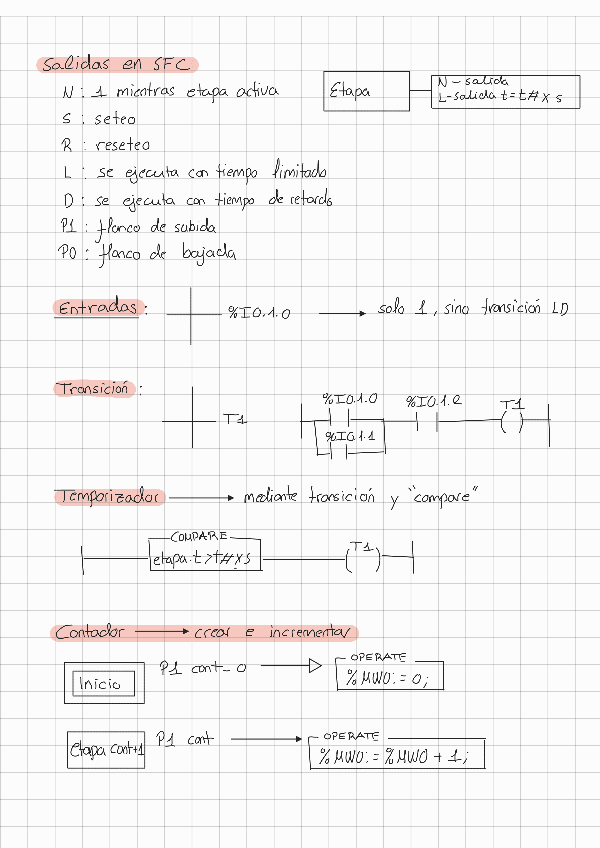 Salidas en SFC
N : 1 mientras etapa activa
S : seteo
R : reseteo
L : se ejecuta con tiempo limitado
D : se ejecuta con tiempo de retardo
P1 : flanco de subida
P0 : flanco de bajada
Etapa
N - salida
L - salida t = t# x s
Entradas :
%I0.1.0
solo 1, sino transición LD
Transición :
T1
%I0.1.0
%I0.1.1
%I0.1.2
T1
Temporizador → mediante transición y "compare"
COMPARE
etapa.t > t# x s
T1
Contador → crear e incrementar
Inicio
P1 cont_0
OPERATE
%MW0 := 0;
etapa cont+1
P1 cont
OPERATE
%MW0 := %MW0 + 1;